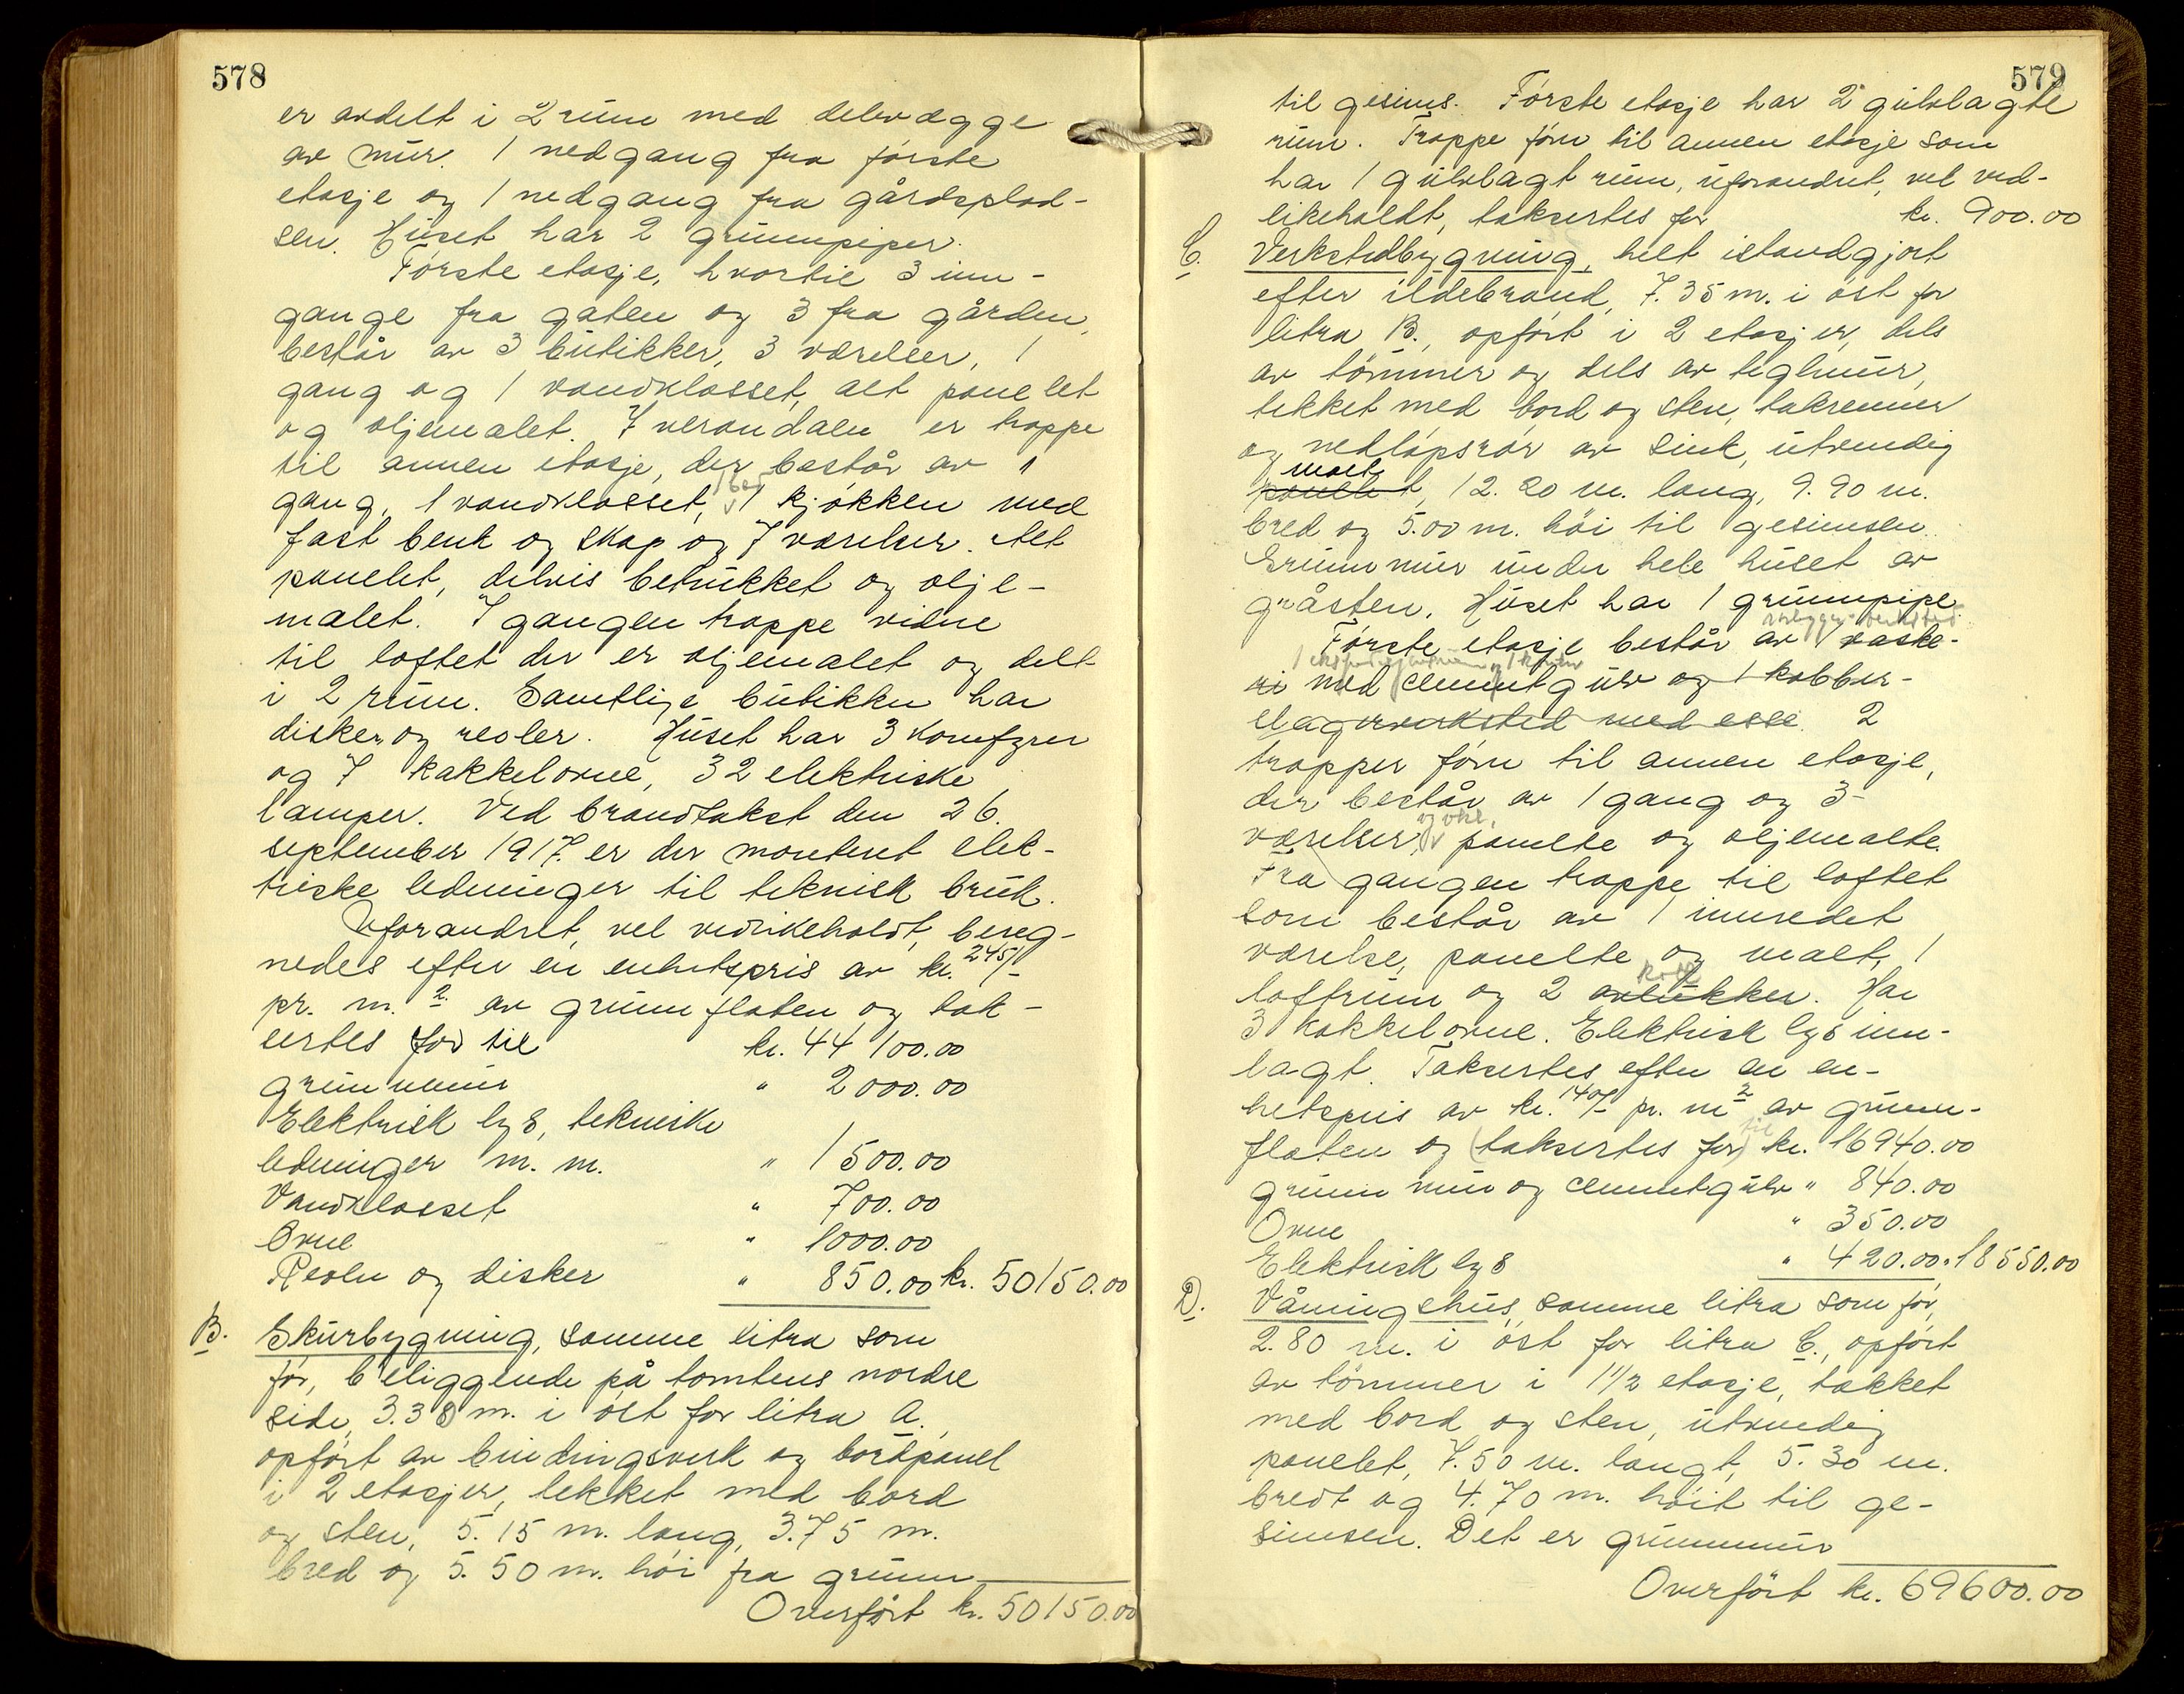 578
er avdelt i 2 rum med delevægge
av mur. 1 nedgang fra første
etasje og 1 nedgang fra gårdsplad-
sen. Huset har 2 grunnpiper.
Første etasje, hvortil 3 inn-
gange fra gaten og 3 fra gården,
består av 3 butikker, 3 værelser, 1
gang og 1 vandklosset, alt panelet
og oljemalet. I verandaen er trappe
til annen etasje, der består av 1
gang, 1 vandklosset, 1 bad 1 kjøkken med
fast benk og skap og 7 værelser. Alt
panelet, delvis betrukket og olje-
malet. I gangen trappe videre
til loftet der er oljemalet og delt
i 2 rum. Samtlige butikker har
disker og reoler. Huset har 3 komfyrer
og 7 kakkelovne, 32 elektriske
lamper. Ved brandtakst den 26.
september 1917 er der montert elek-
triske ledninger til teknisk bruk.
Uforandret, vel vedlikeholdt, bereg-
nedes efter en enhetspris av kr. 245/-
pr. m.² av grunnflaten og tak-
sertes for til kr. 44 100.00
grunnmur " 2 000.00
Elektrisk lys, tekniske
ledninger m. m. " 1 500.00
Vandklosset " 700.00
Ovne " 1000.00
Reoler og disker " 850.00 kr. 50150.00
B. Skurbygning, samme litra som
før, beliggende på tomtens nordre
side, 3.38 m. i øst for litra A.,
opført av bindingsverk og bordpanel
i 2 etasjer, tekket med bord
og sten, 5.15 m. lang, 3.75 m.
bred og 5.50 m. høi fra grunn
Overført kr. 50150.00
579
til gesims. Første etasje har 2 gulvlagte
rum. Trappe fører til annen etasje som
har 1 gulvlagt rum, uforandret, vel ved-
likeholdt, taksertes for kr. 900.00
C. Verkstedbygning, helt istandgjort
efter ildebrand, 7.35 m. i øst for
litra B., opført i 2 etasjer, dels
av tømmer og dels av teglmur,
tekket med bord og sten, takrenner
og nedløpsrør av sink, utvendig
malt
panelet, 12.20 m. lang, 9.90 m.
bred og 5.00 m. høi til gesimsen.
Grunnmur under hele huset av
gråsten. Huset har 1 grunnpipe
rørlegger-verksted
Første etasje består av 1 vaske-
1 ekspedisjonsrum og 1 kontor
ri med cementgulv og 1 kobber-
slagerverksted med esse. 2
trapper fører til annen etasje,
der består av 1 gang og 3
værelser, panelte og oljemalte.
Fra gangen trappe til loftet
som består av 1 innredet
værelse, panelte og malt, 1
loftrum og 2 avlukker. Har
3 kakkelovne. Elektrisk lys inn-
lagt. Taksertes efter en en-
hetspris av kr. 140/- pr. m² av grunn-
til
flaten og (taksertes for) kr. 16940.00
grunnmur og cementgulv " 840.00
Ovne " 350.00
Elektrisk lys " 420.00 " 18550.00
D. Våningshus, samme litra som før,
2.80 m. i øst for litra C., opført
av tømmer i 1 1/2 etasje, tækket
med bord og sten, utvendig
panelet, 7.50 m. langt, 5.30 m.
bredt og 4.70 m. høit til ge-
simsen. Det er grunnmur
Overført kr. 69600.00